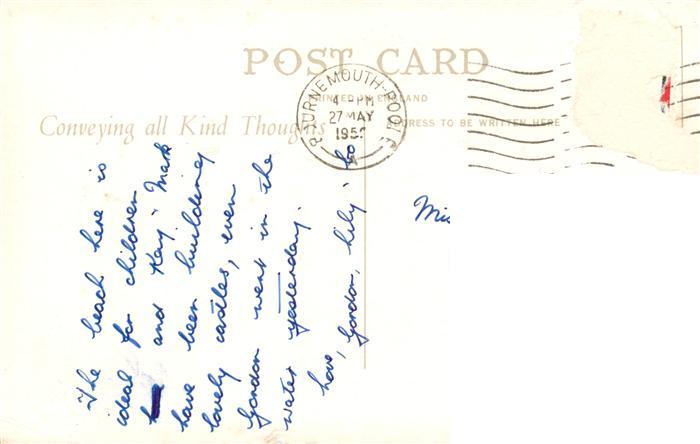 POST CARD
PRINTED IN ENGLAND
Conveying all Kind Thoughts
ADDRESS TO BE WRITTEN HERE
BOURNEMOUTH-POOLE
4 PM
27 MAY
195
A
The beach here is
ideal for children
and Kay & Mark
have been building
lovely castles, even
Gordon went in the
water yesterday.
Love, Gordon, Lily &
Mis